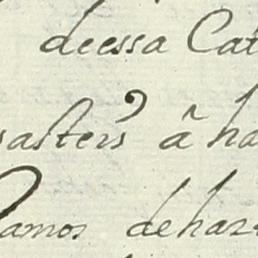 deessa Cat
sasters â ha
Ramos dehaz